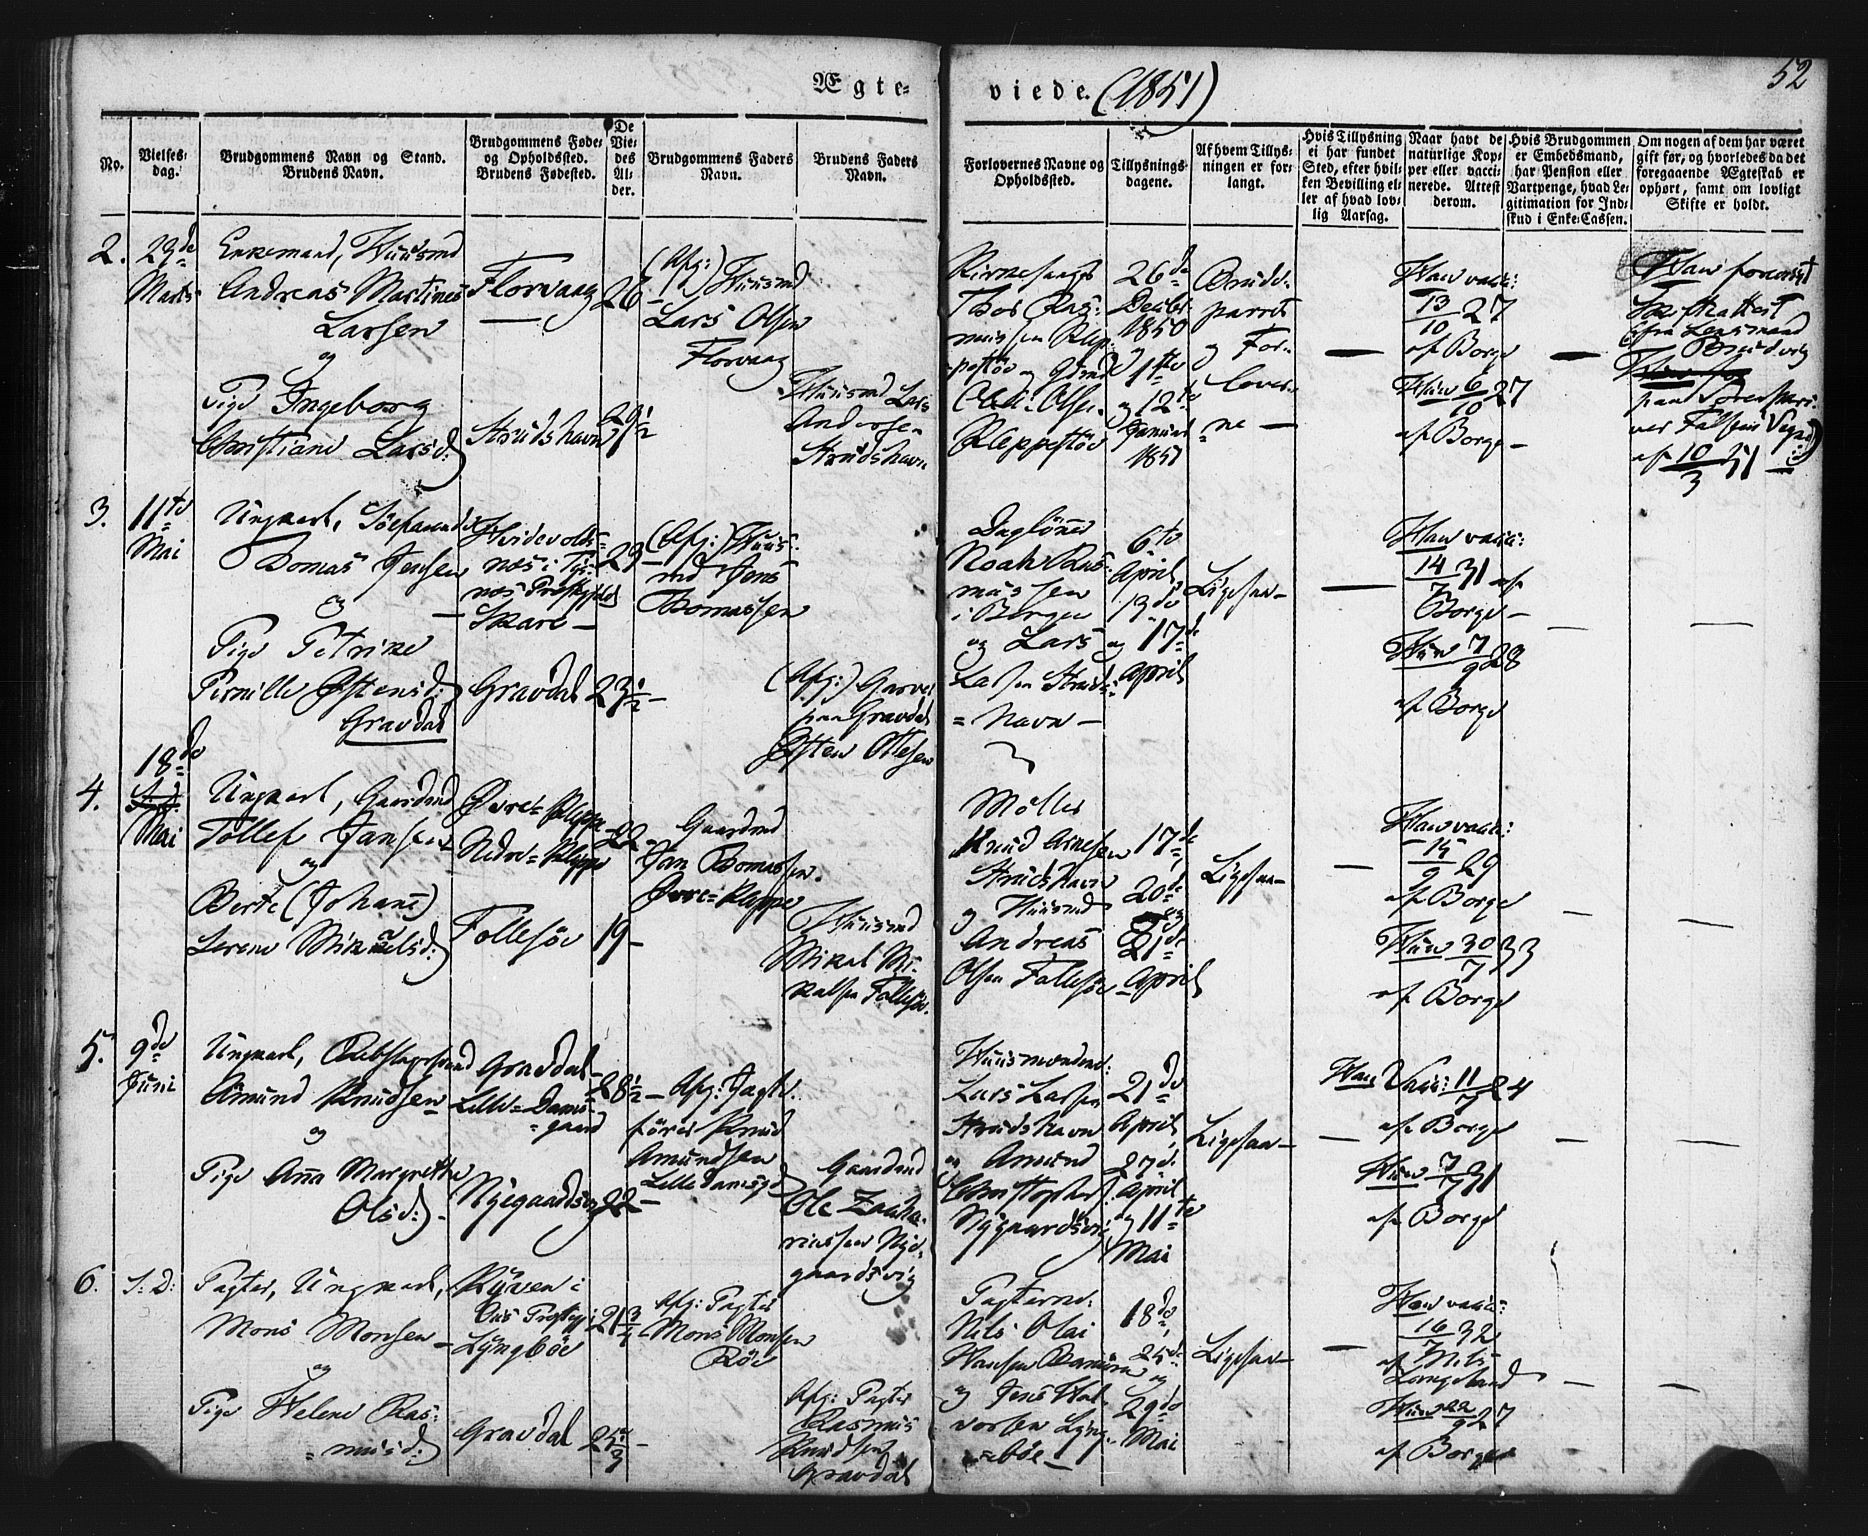 Ægte-
viede. (1851)
52
No.
Vielses-
dag.
Brudgommens Navn og Stand.
Brudens Navn.
Brudgommens Føde-
og Opholdssted.
Brudens Fødested.
De
Vie-
des
Al-
der.
Brudgommens Faders
Navn.
Brudens Faders
Navn.
Forlovernes Navne og
Opholdssted.
Tillysnings-
dagene.
Af hvem Tillys-
ningen er for-
langt.
Hvis Tillysning
ei har fundet
Sted, efter hvil-
ken Bevilling el-
ler af hvad lov-
lig Aarsag.
Naar havt de
naturlige Kop-
per eller vacci-
nerede. Attest
derom.
Hvis Brudgommen
er Embedsmand,
har Pension eller
Vartpenge, hvad Le-
gitimation for Ind-
skud i Enke-Cassen.
Om nogen af dem har været
gift før, og hvorledes da det
foregaaende Ægteskab er
ophørt, samt om lovligt
Skifte er holdt.
2.
23de
Marts
Enkemand, Huusmd
Andreas Martines
Larsen
og
Pige Ingeborg
Christiane Larsd:
Florvaag
Strudshavn
26
29½
(Afg:) Huusmd
Lars Olsen
Florvaag
Huusmd Lars
Andersen
Strudshavn
Thos Ras-
mussen Klep-
pestøe og
Olsen
Kleppestøe
26de
Decbr
1850
og
12te
Januar
1851
Brude-
parret
og For-
lover-
ne —
Han vacc:
13/10 27
af Borge
Hun 6/10 27
af Borge —
Han forevist
Skifteattest
fra Lensmand
paa Sorenskri-
ver Falsens Vegne
af 10/3 51
3.
11te
Mai
Ungkarl,
Tomas Jensen
og
Pige Petrine
Pernille Østensd:
Gravdal
næs i Tys-
næs Præstegjeld
Skare —
Gravdal
23
23½ —
(Afg:) Huus-
md Jens
Tomassen
(Afg:) Garver
paa Gravdal
Østen Ottesen
Dagløner
Noah Ras-
mussen
i Bergen
og Lars
Larsen Struds-
= havn —
6te
April
13de
og 17de
April
Ligesaa —
Han vacc:
14/7 31 af
Borge —
Hun 7/9 28
af Borge
4.
18de
Mai
Ungkarl, Gaardmd
Tollef Jansen
og
Berte (Johane)
Serene Mikaelsd:
Øvre-Kleppe
Nedre-Kleppe
Follesøe
22
19 —
Gaardmd
Jan Tomassen
Øvre-Kleppe
Huusmd
Mikal Mi-
kalsen Follesøe.
Møller
Knud Arnesen
Strudshavn
og Huusmd
Andreas
Olsen Follesøe
17de
20de
og
21de
April
Ligesaa —
Han vacc:
15/9 29
af Borge
Hun 30/7 33
af Borge
5.
9de
Juni
Ungkarl, Rebslagersvend
Amund Knudsen
og
Pige Anna Margrethe
Olsd:
Gravdal
Lille-Dams-
gaard
Nygaardsvig
28½ —
22 —
Afg: Jagte-
fører Knud
Amundsen
Lille Damsgd
Gaardmd
Ole Zacha-
riassen Nye-
gaardsvig
Huusmændene
Lars Larsen
Strudshavn
og Amund
Christophers.
Nygaardsvig
21de
April
27de
April
og 11te
Mai
Ligesaa —
Han Vacc: 11/7 24
af Borge
Hun 7/7 31
af Borge
6.
S. D:
Pagter, Ungkarl,
Mons Monsen
og
Pige Helene Ras-
musd:
i
Lyngbøe
Gravdal
21¾
Afg: Pagter
Mons Monsen
Røe
Afg: Pagter
Rasmus
Knudsen
Gravdal
Pagterne:
Nils Olai
Hansen
og Jens Hal-
vorsen Lyng-
= bøe —
18de
25de
og
29de
Mai
Ligesaa —
Han vacc:
16/7 32
af Nils
Langeland
Hun 22/9 27
af Borge